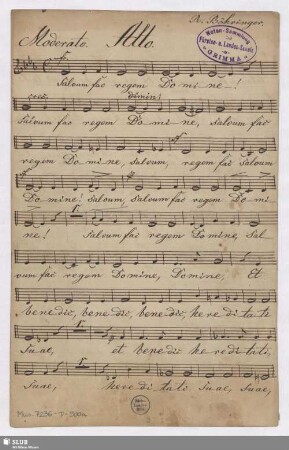 R. Böhringer.
Moderato. Alto.
Noten-Sammlung
der
Fürsten- u. Landes-Schule
GRIMMA
Salvum fac regem Domine-!
cresc. dimin:
Salvum fac regem Domine, salvum fac
regem Domine, salvum, regem fac salvum
Domine! salvum, salvum fac regem Domi
ne! Salvum fac regem Domine, Sal
vum fac regem Domine, Domine, Et
benedic, benedic, benedic, heredi tati
suae, et benedic heredi tati,
suae, heredi tati suae, suae,
SLUB